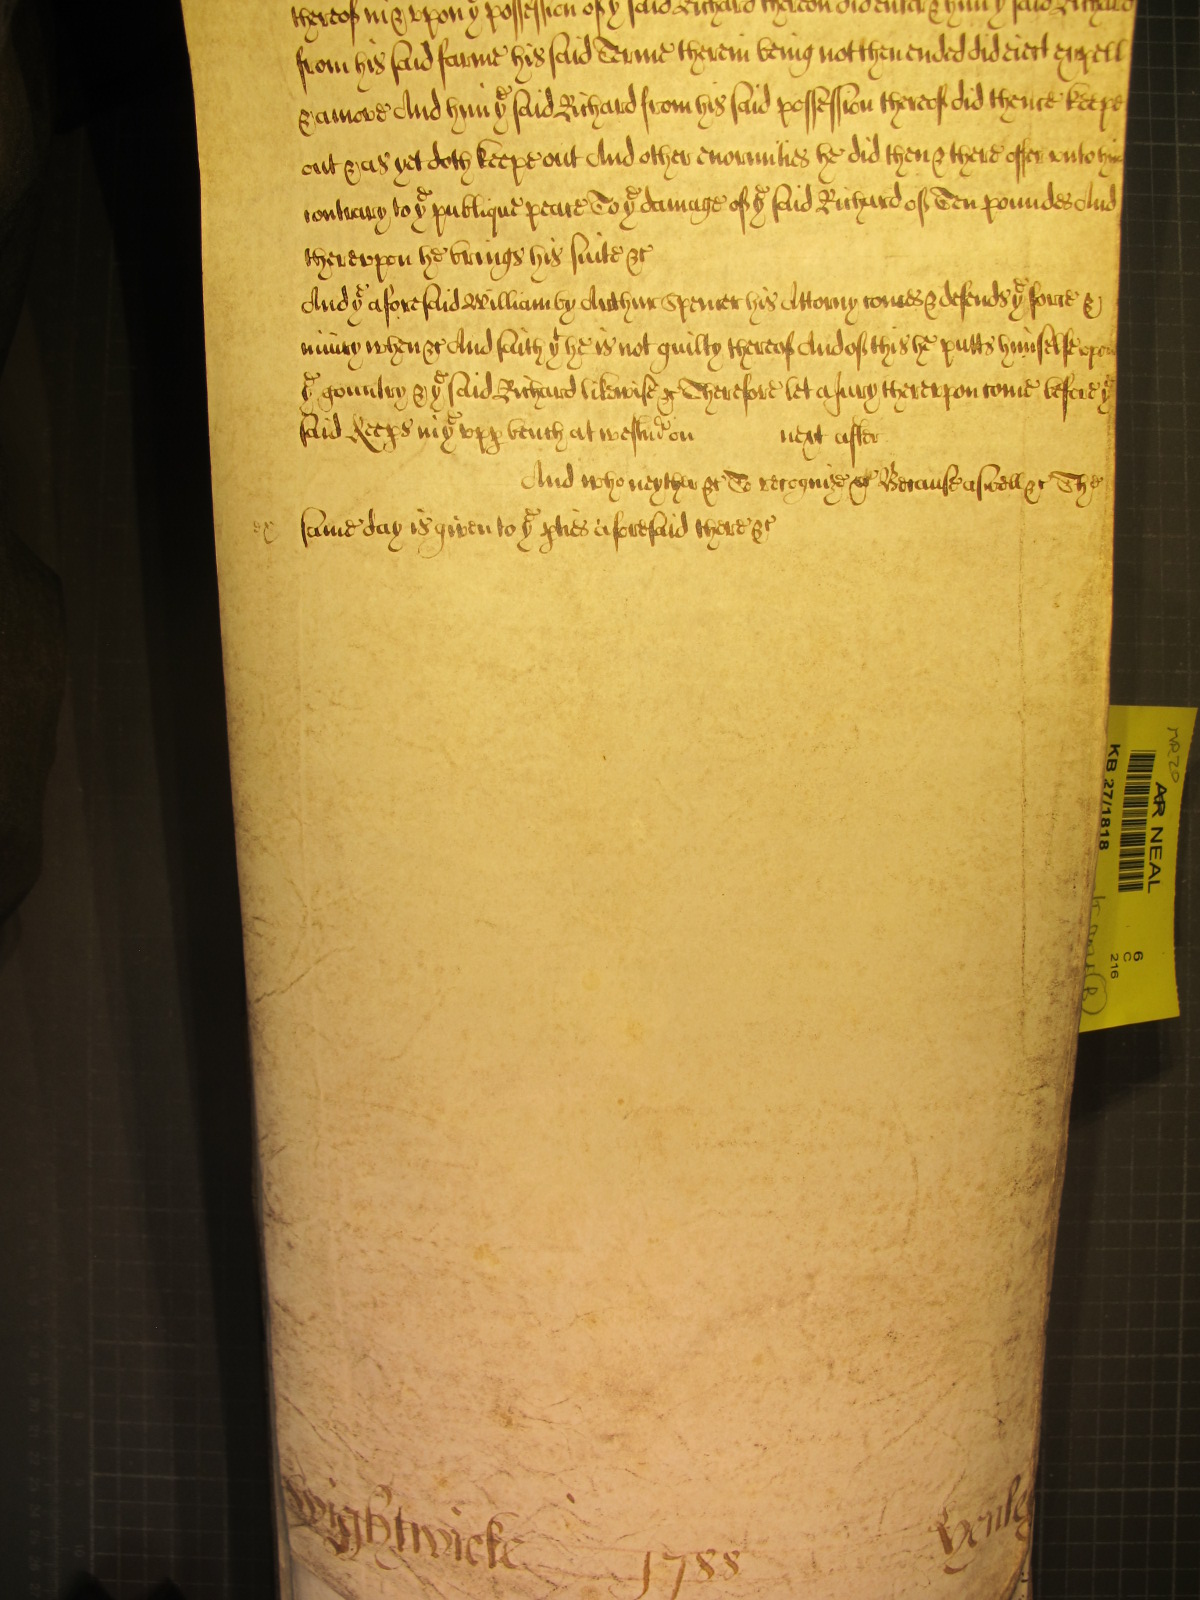 thereof in & vpon yͤ possession of yͤ said Richard thereon did enter & him yͤ said Richard
from his said farme his said Terme therein being not then ended did eiect expell
& amove And him yͤ said Richard from his said possession thereof did thence keepe
out & as yet doth keepe out And other enormities he did then & there offer vnto him
contrary to yͤ publique peace To yͤ damage of yͤ said Richard of Ten poundes And
therevpon he brings his suite &c
And yͤ aforesaid William by Arthur Spencer his Attorny comes & defends yͤ force &
iniury when &c And saith yͭ he is not guilty thereof And of this he putts himselfe vpon
yͤ Country & yͤ said Richard likewise &c Therefore let a Jury therevpon come before yͤ
said Keeps in yͤ vpp bench at Westmͬ on next after
And who neyther &c To recognize &c Because aswell &c The
ex same day is given to yͤ pties aforesaid there &c
Wightwicke 1788 Henley
AR NEAL
KB 27/1818
6
C
216